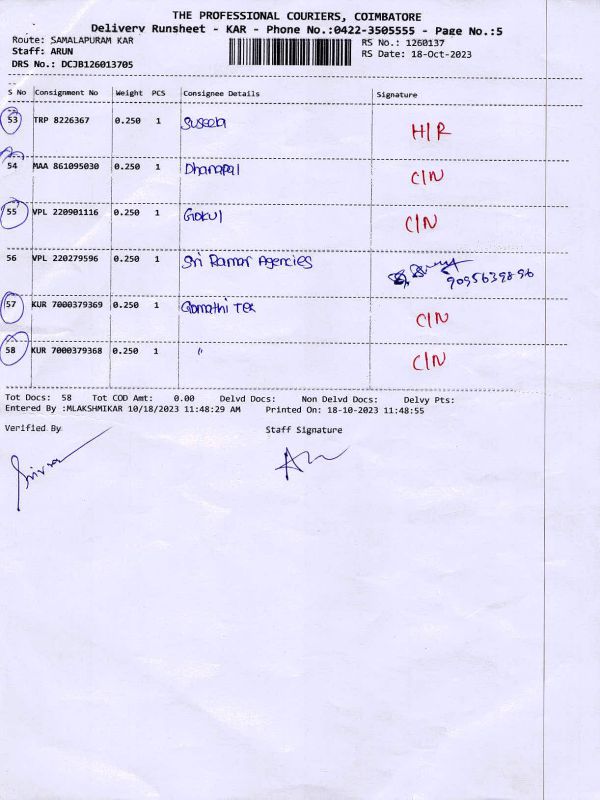 THE PROFESSIONAL COURIERS, COIMBATORE
Delivery Runsheet - KAR - Phone No.:0422-3505555 - Page No.:5
Route: SAMALAPURAM KAR RS No.: 1260137
Staff: ARUN RS Date: 18-Oct-2023
DRS No.: DCJB126013705
S No Consignment No Weight PCS Consignee Details Signature
53 TRP 8226367 0.250 1 Suseela H/R
54 MAA 861095030 0.250 1 Dhanapal C/N
55 VPL 220901116 0.250 1 Gokul C/N
56 VPL 220279596 0.250 1 Sri Ramar Agencies 9095639896
57 KUR 7000379369 0.250 1 Gomathi Tex C/N
58 KUR 7000379368 0.250 1 " C/N
Tot Docs: 58 Tot COD Amt: 0.00 Delvd Docs: Non Delvd Docs: Delvy Pts:
Entered By :MLAKSHMIKAR 10/18/2023 11:48:29 AM Printed On: 18-10-2023 11:48:55
Verified By Staff Signature